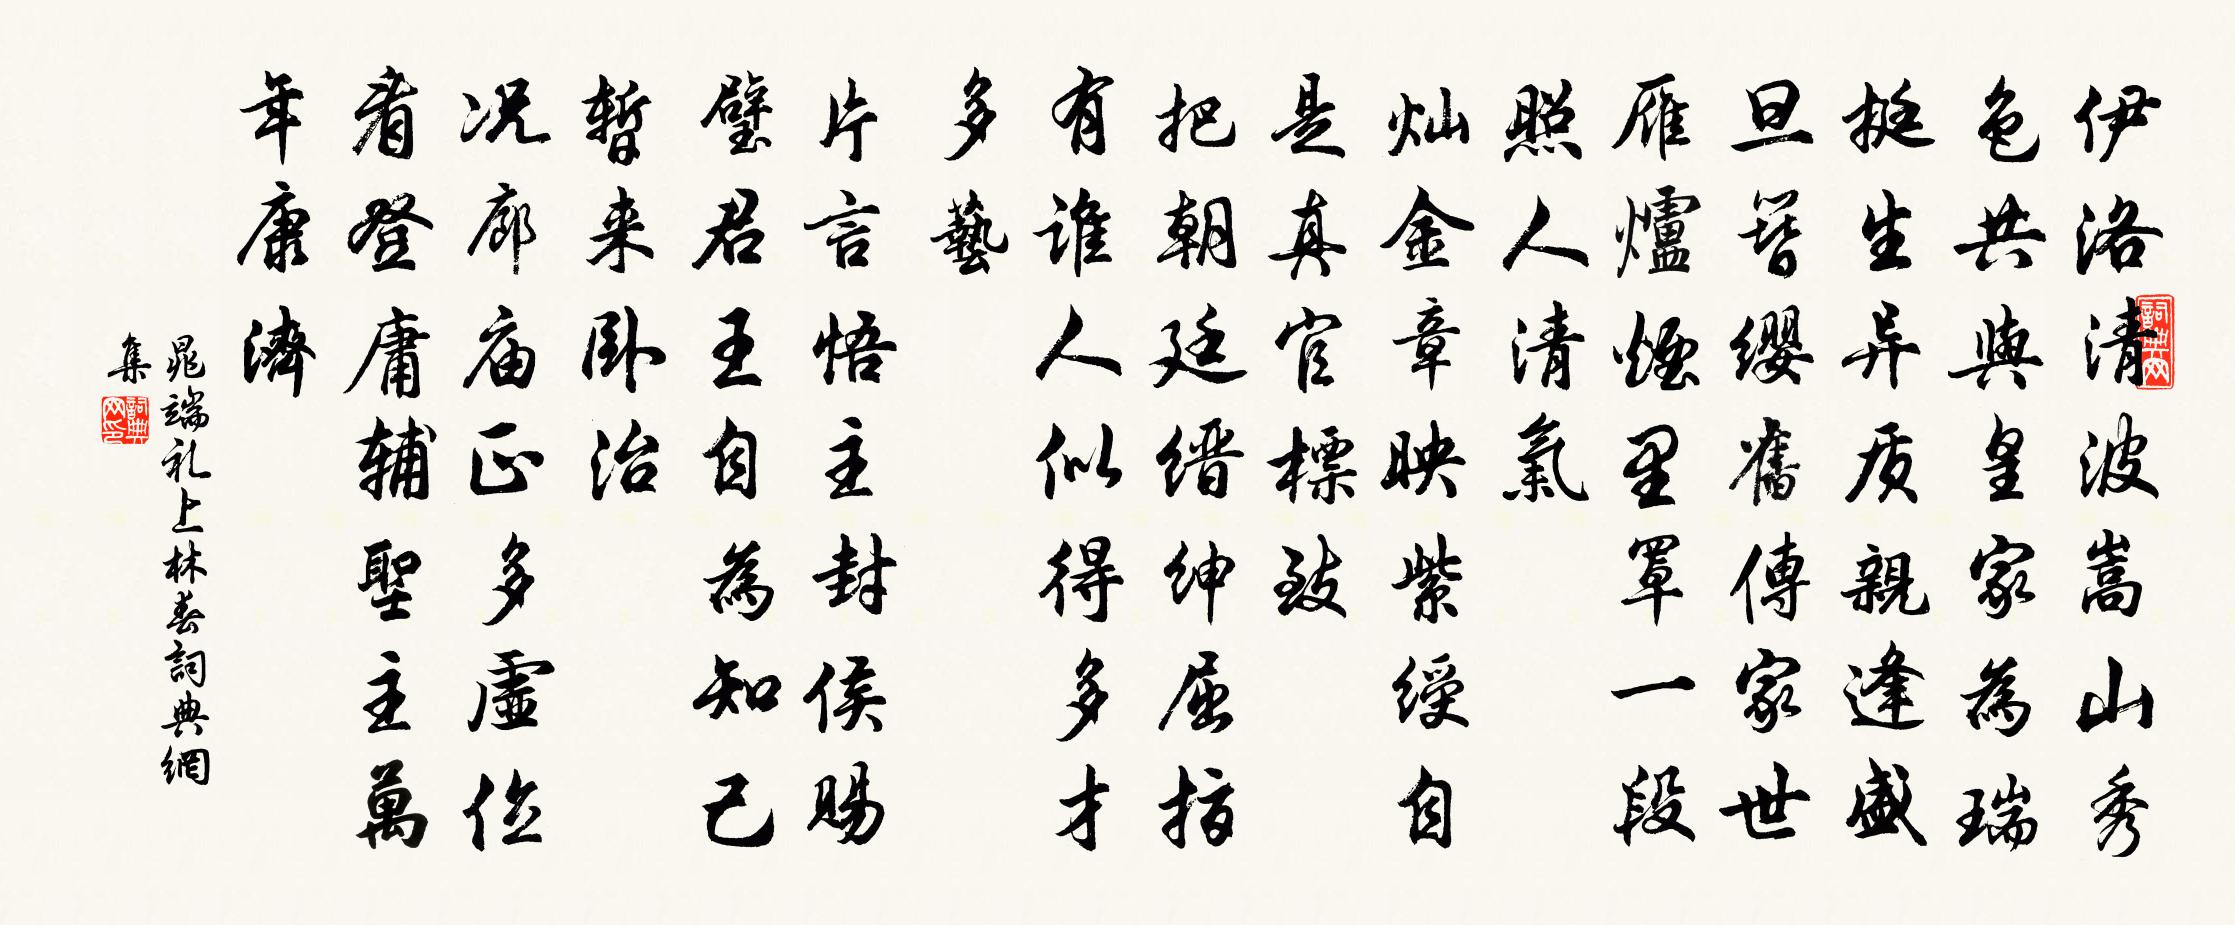 伊洛清波嵩山秀
色共與皇家為瑞
挺生异质親逢盛
旦簪缨舊傳家世
雁爐煙里罩一段
照人清氣
灿金章映紫绶自
是真官標致
把朝廷缙绅屈指
有谁人似得多才
多藝
片言悟主封侯賜
璧君王自為知己
暫来卧治
况廊庙正多虚位
看登庸辅聖主萬
年康濟
晁端礼上林春詞典網
集
詞典网
詞典网印